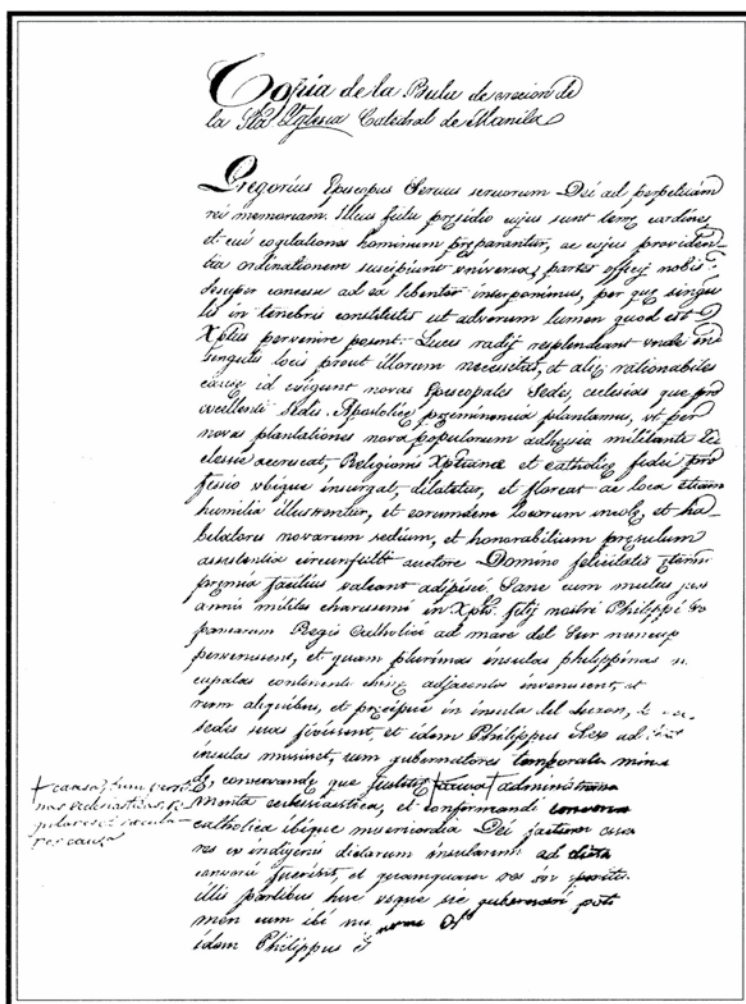 Copia de la Bula de ereccion de
la Sta. Yglesia Catedral de Manila
Gregorius Episcopus Servus servorum Dei ad perpetuam
rei memoriam. Illius fulti presidio cujus sunt terre cardines
et cui cogitationes hominum preparantur, ac cujus providen-
tia ordinationem suscipiunt universa, partes officij nobis
desuper concesse ad ea libenter interponimus, per que singu
lis in tenebris constitutis ut ad verum lumen quod est
Xptus pervenire posint. Lucis radij resplendeant unde in
singulis locis prout illorum necesitas, et alie rationabiles
cause id exigunt novas Episcopales Sedes, eclesias que pro
excellenti Sedis Apostolice preminencia plantamus, ut per
novas plantationes nova populorum adhesio militante Ec
clessie accrescat, Religionis Xptiane et catholice fidei pro
fessio ubique insurgat, dilatetur, et floreat ac loca etiam
humilia illustrentur, et eorumdem locorum incole, et ha-
bitatores novarum sedium, et honorabilium presulum
assistentia circumfulti auctore Domino felicitatis eterne
premia facilius valeant adipisci. Sane cum multis
annis milites charissimi in Xpto. filij nostri Philippi
paniarum Regis Catholici ad mare del Sur nuncup
pervenissent, et quam plurimas insulas philippinas
cupatas continenti adjacentes invenissent, et
rum aliquibus, et precipue in insula del Luzon,
sedes suas fixissent, et idem Philippus Rex ad
insulas misisset, cum gubernatores temporales minis
conservande que justitie + causa + administra
+ causa, tum perso
nas ecclesiasticas, re
gulares et secula-
res causa
menta ecclesiastica, et confirmandi
catholica ibique misericordia Dei factum
res ex indigenis dictarum insularum ad dicta
conversi fuerint, et quamquam res in
illis partibus huc usque sic gubernari
men cum ibi
idem Philippus